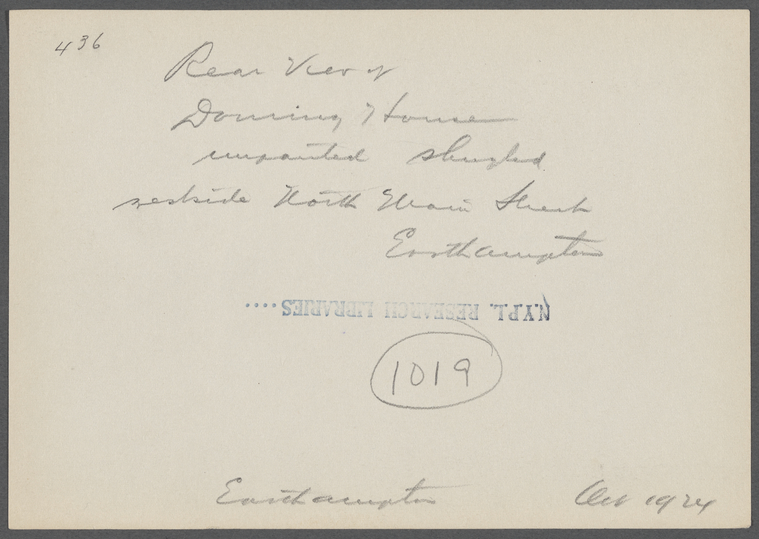 436
Rear View of
Dominy House
unpainted shingled
westside North Main Street
Easthampton
N.Y.P.L. RESEARCH LIBRARIES....
1019
Easthampton Oct 1924